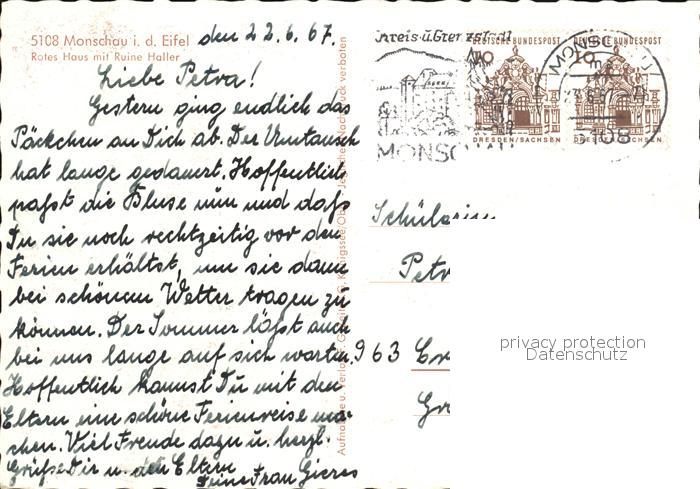 5108 Monschau i. d. Eifel
Rotes Haus mit Ruine Haller
den 22.6.67.
Liebe Petra!
Gestern ging endlich das
Päckchen an Dich ab. Der Umtausch
hat lange gedauert. Hoffentlich
paßt die Bluse nun und daß
Du sie noch rechtzeitig vor den
Ferien erhältst, um sie dann
bei schönem Wetter tragen zu
können. Der Sommer läßt auch
bei uns lange auf sich warten.
Hoffentlich kannst Du mit den
Eltern eine schöne Ferienreise ma-
chen. Viel Freude dazu u. herzl.
Grüße Dir u. den Eltern
Deine Frau Gieres
Aufnahme u. Verlag: Königssee/Obb. Jeglicher Nachdruck verboten
Kreis u. Grenzstadt
MONSCHAU
MONSCHAU
5108
DEUTSCHE BUNDESPOST
DRESDEN/SACHSEN
DEUTSCHE BUNDESPOST
DRESDEN/SACHSEN
Schülerin
Petr
963
Gr
privacy protection
Datenschutz